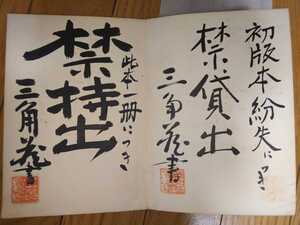 初版本紛失につき
禁貸出
三角蔵書
此本一冊につき
禁持出
三角蔵書